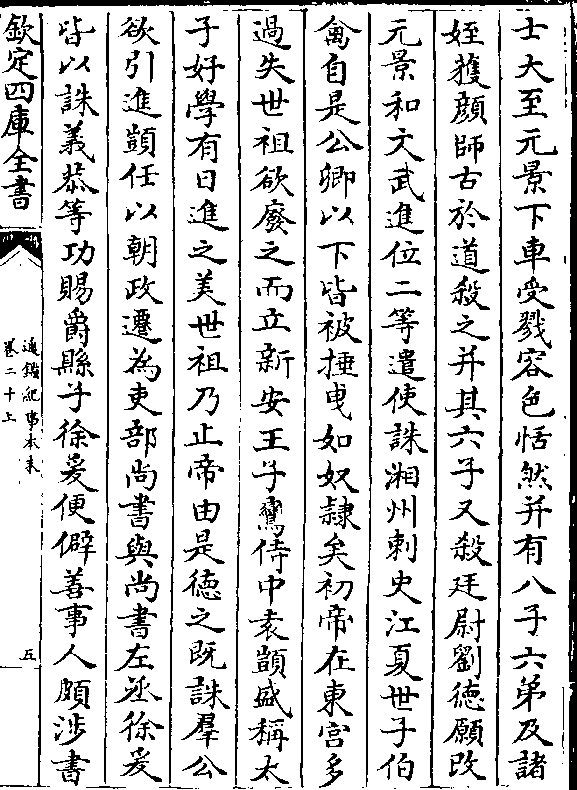 士大至元景下車受戮容色恬然并有八子六弟及諸
姪獲顔師古於道殺之并其六子又殺廷尉劉德願改
元景和文武進位二等遣使誅湘州刺史江夏世子伯
禽自是公卿以下皆被捶曵如奴隸矣初帝在東宫多
過失世祖欲廢之而立新安王子鸞侍中袁顗盛稱太
子好學有日進之美世祖乃止帝由是德之既誅羣公
欲引進顗任以朝政遷為吏部尚書與尚書左丞徐爰
皆以誅義恭等功賜爵縣子徐爰便僻善事人頗涉書
欽定四庫全書
通鑑紀事本末
卷二十上
五